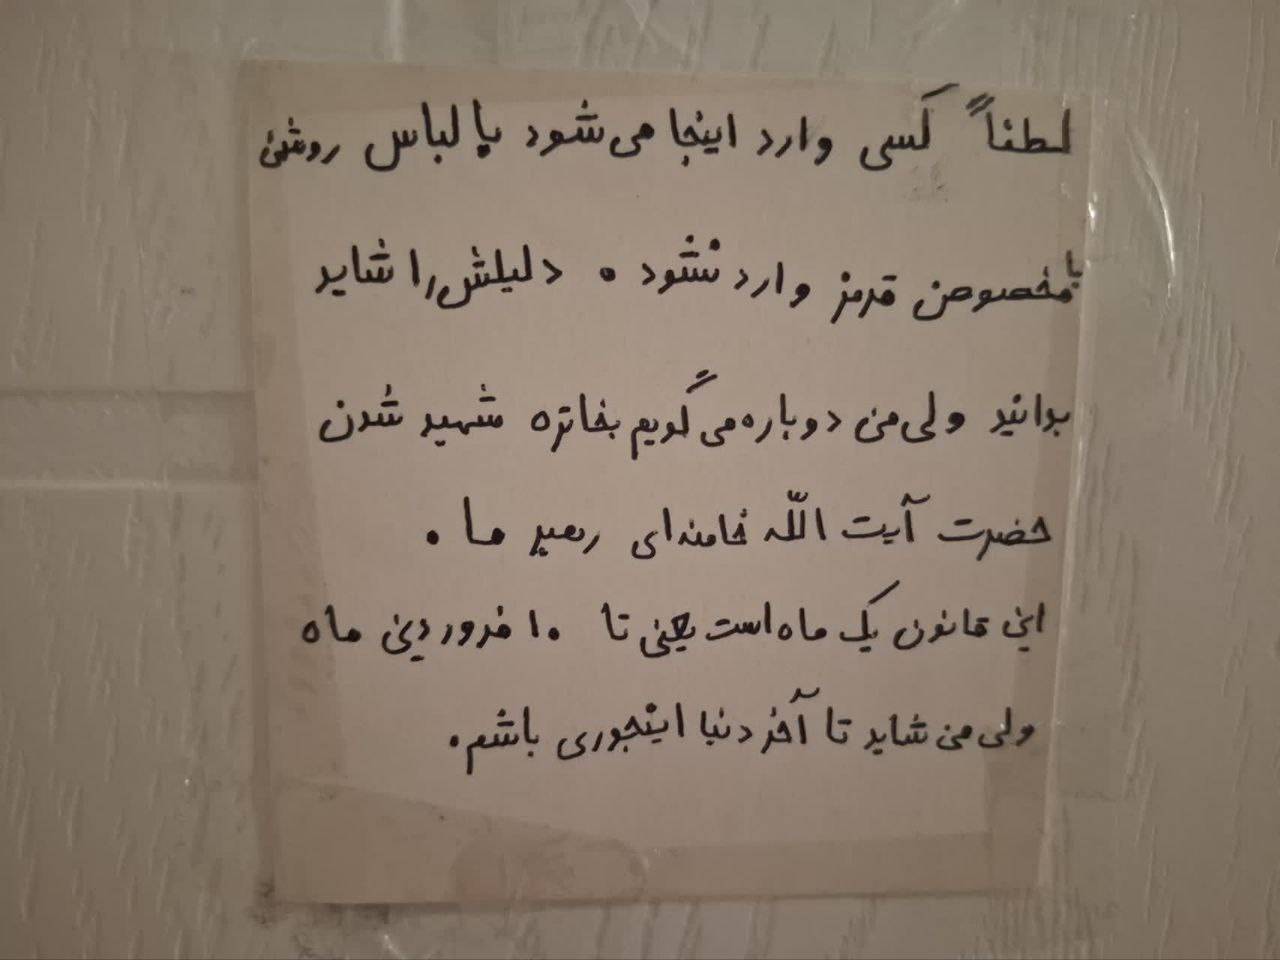 لطفاً کسی وارد اینجا می‌شود با لباس روشن
با مخصوصن قرمز وارد نشود . دلیلش را شاید
بدانید ولی من دوباره می‌گویم بخاتره شهید شدن
حضرت آیت اللّه خامنه‌ای رهبر ما .
این قانون یک ماه است یعنی تا ۱۰ فروردین ماه
ولی من شاید تا آخر دنیا اینجوری باشم .